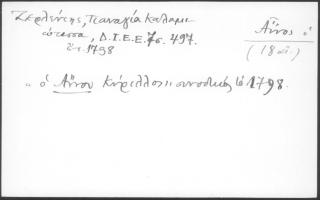 Ζερλέντης, Παναγία Καλαμι-
ώτισσα, Δ.Ι.Ε.Ε. 7ς. 497.
ἔτ. 1798
Αἶνος ὁ
(18 αἰ.)
" ὁ Αἴνου Κύριλλος συνοδικὸς 1798.